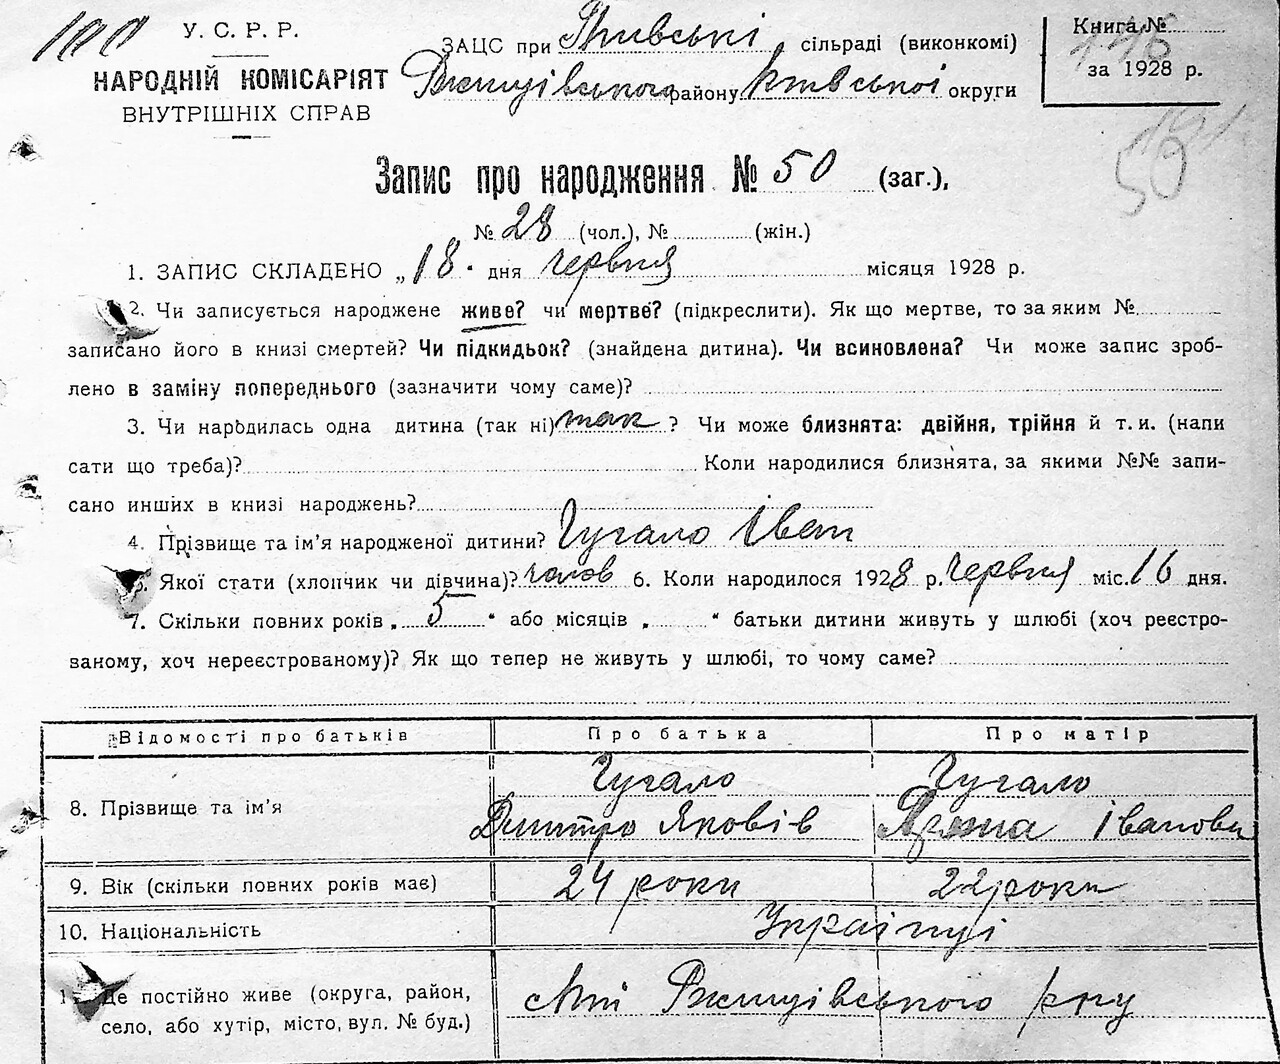 У. С. Р. Р.
НАРОДНІЙ КОМІСАРІЯТ
ВНУТРІШНІХ СПРАВ
ЗАЦС при сільраді (виконкомі)
Ржищівського району Київської округи
Книга №
за 1928 р.
Запис про народження № 50 (заг.),
№ 28 (чол.), № (жін.)
1. ЗАПИС СКЛАДЕНО „18" дня червня місяця 1928 р.
2. Чи записується народжене живе? чи мертве? (підкреслити). Як що мертве, то за яким №
записано його в книзі смертей? Чи підкидьок? (знайдена дитина). Чи всиновлена? Чи може запис зроб-
лено в заміну попереднього (зазначити чому саме)?
3. Чи народилась одна дитина (так ні) так ? Чи може близнята: двійня, трійня й т. и. (напи
сати що треба)? Коли народилися близнята, за якими №№ запи-
сано инших в книзі народжень?
4. Прізвище та ім'я народженої дитини? Чугало Іван
5. Якої статі (хлопчик чи дівчина)? чолов 6. Коли народилося 1928 р. червня міс. 16 дня.
7. Скільки повних років „ 5 " або місяців „ " батьки дитини живуть у шлюбі (хоч реєстро-
ваному, хоч нереєстрованому)? Як що тепер не живуть у шлюбі, то чому саме?
Відомості про батьків Про батька Про матір
8. Прізвище та ім'я Чугало Дмитро Яковів Чугало Іванови
9. Вік (скільки повних років має) 24 роки 22 роки
10. Національність Українці
11. Де постійно живе (округа, район,
село, або хутір, місто, вул. № буд.) Ржищівського р-ну